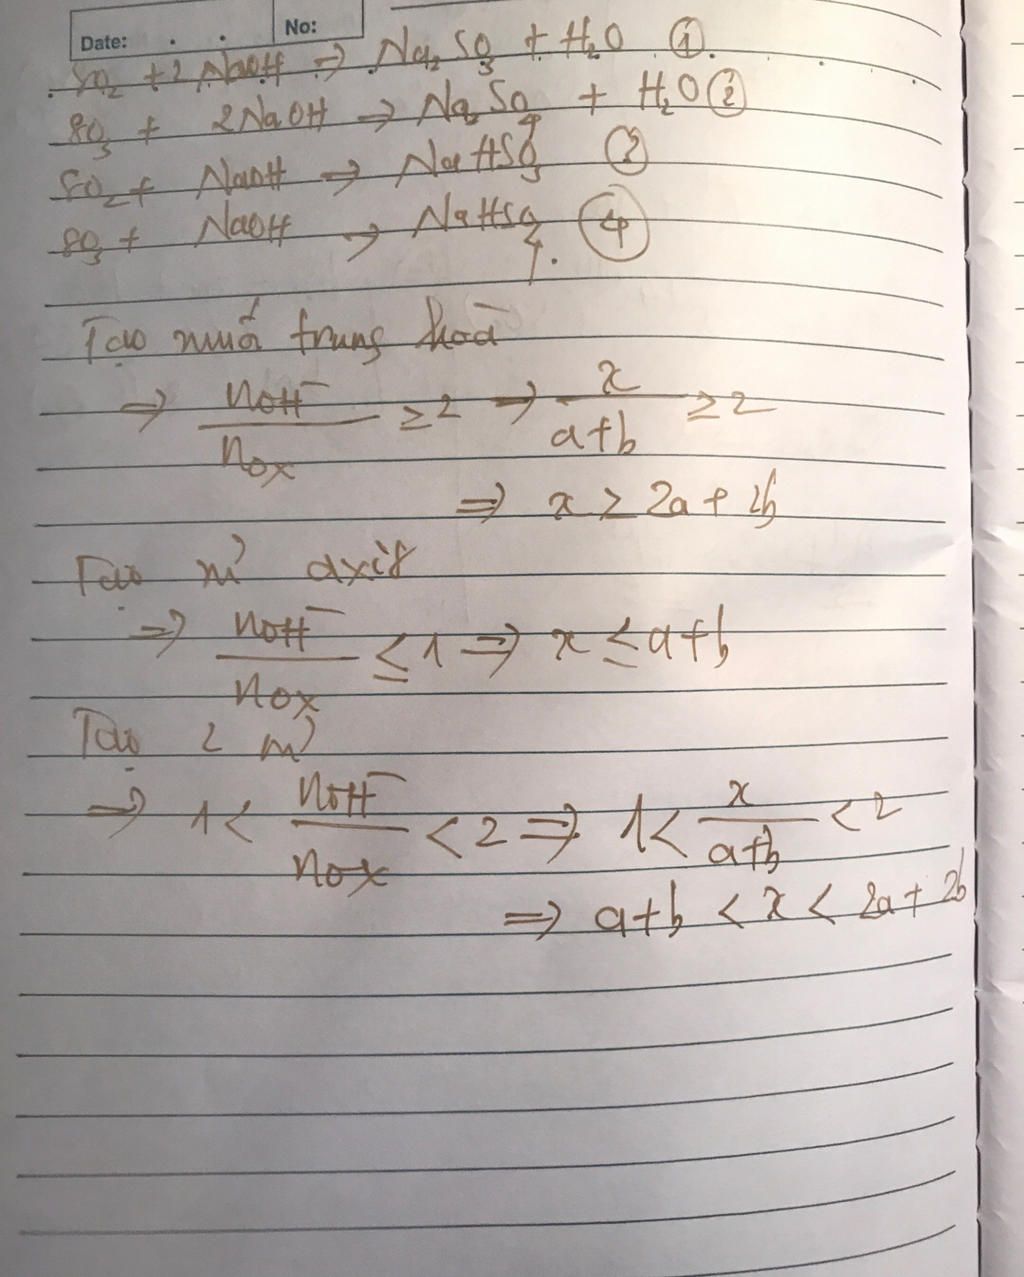 Date: . . No:
SO₂ + 2NaOH → Na₂SO₃ + H₂O ①.
SO₃ + 2NaOH → Na₂SO₄ + H₂O ②
SO₂ + NaOH → NaHSO₃ ③
SO₃ + NaOH → NaHSO₄. ④
Tạo muối trung hoà
⇒ nOH⁻/nox ≥ 2 ⇒ x/(a+b) ≥ 2
⇒ x ≥ 2a + 2b
Tạo m' axit
⇒ nOH⁻/nox ≤ 1 ⇒ x ≤ a+b
Tạo 2 m'
⇒ 1 < nOH⁻/nox < 2 ⇒ 1 < x/(a+b) < 2
⇒ a+b < x < 2a + 2b